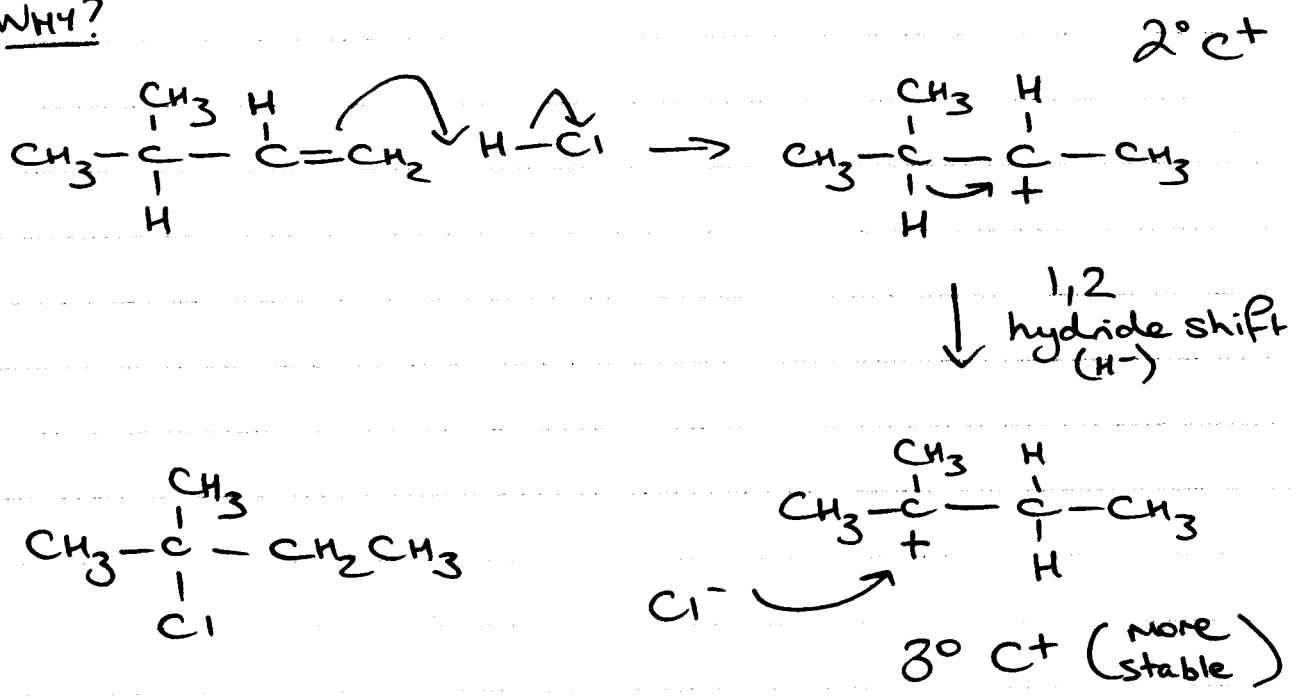 WHY?
2° C+
CH3 H
CH3-C-C=CH2 H-Cl →
H
CH3 H
CH3-C-C-CH3
H +
1,2
hydride shift
(H-)
CH3
CH3-C-CH2CH3
Cl
CH3 H
CH3-C-C-CH3
+ H
Cl-
3° C+ (more stable)